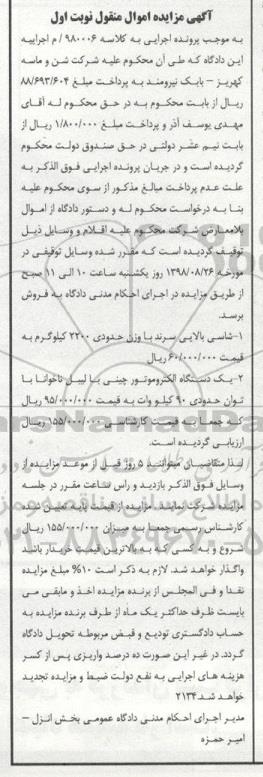 آگهی مزایده اموال منقول نوبت اول
به موجب پرونده اجرایی به کلاسه ۹۸۰۰۰۶ / م اجراییه
این دادگاه که طی آن محکوم علیه شرکت شن و ماسه
کهریز – بابک نیرومند به پرداخت مبلغ ۸۸/۶۹۳/۶۰۴
ریال از بابت محکوم به در حق محکوم له آقای
مهدی یوسف آذر و پرداخت مبلغ ۱/۸۰۰/۰۰۰ ریال از
بابت نیم عشر دولتی در حق صندوق دولت محکوم
گردیده است و در جریان پرونده اجرایی فوق الذکر به
علت عدم پرداخت مبالغ مذکور از سوی محکوم علیه
بنا به درخواست محکوم له و دستور دادگاه از اموال
بلامعارض شرکت محکوم علیه اقلام و وسایل ذیل
توقیف گردیده است که مقرر شده وسایل توقیفی در
مورخه ۱۳۹۸/۰۸/۲۶ روز یکشنبه ساعت ۱۰ الی ۱۱ صبح
از طریق مزایده در اجرای احکام مدنی دادگاه به فروش
برسد.
۱-شاسی بالایی سرند با وزن حدودی ۲۲۰۰ کیلوگرم به
قیمت ۶۰/۰۰۰/۰۰۰ ریال
۲- یک دستگاه الکتروموتور چینی با لیبل ناخوانا با
توان حدودی ۹۰ کیلو وات به قیمت ۹۵/۰۰۰/۰۰۰ ریال
که جمعا به قیمت کارشناسی ۱۵۵/۰۰۰/۰۰۰ ریال
ارزیابی گردیده است.
لذا متقاضیان میتوانند ۵ روز قبل از موعد مزایده از
وسایل فوق الذکر بازدید و راس ساعت مقرر در جلسه
مزایده شرکت نمایند. مزایده از قیمت پایه تعیین شده
کارشناس رسمی جمعا به میزان ۱۵۵/۰۰۰/۰۰۰ ریال
شروع و به کسی که به بالاترین قیمت خریدار باشد
واگذار خواهد شد. لازم به ذکر است ۱۰% مبلغ مزایده
نقدا و فی المجلس از برنده مزایده اخذ و مابقی می
بایست ظرف حداکثر یک ماه از طرف برنده مزایده به
حساب دادگستری تودیع و قبض مربوطه تحویل دادگاه
گردد. در غیر این صورت ده درصد واریزی پس از کسر
هزینه های اجرایی به نفع دولت ضبط و مزایده تجدید
خواهد شد.۲۱۳۴
مدیر اجرای احکام مدنی دادگاه عمومی بخش انزل –
امیر حمزه